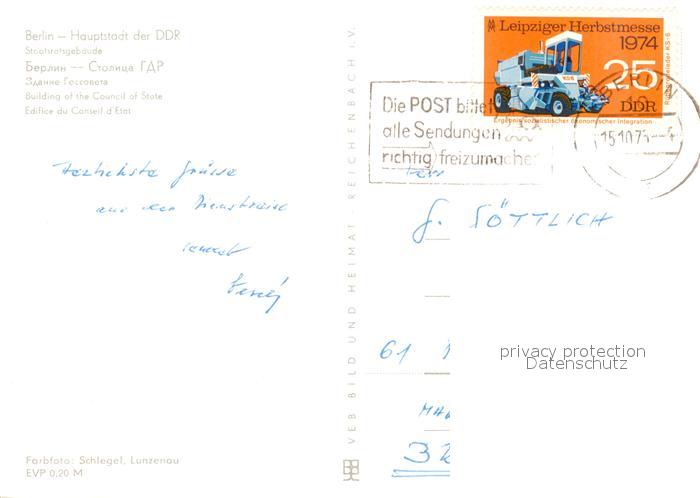 Berlin – Hauptstadt der DDR
Staatsratsgebäude
Берлин — Столица ГДР
Здание Госсовета
Building of the Council of State
Edifice du Conseil d'Etat
Leipziger Herbstmesse
1974
25
DDR
KS-6
Ergebnis sozialistischer ökonomischer Integration
Die POST bittet
alle Sendungen
richtig freizumachen
BERLIN
15.10.7
Herzlichste Grüsse
aus der Dienstreise
sendet
G. GÖTTLICH
61
privacy protection
Datenschutz
VEB BILD UND HEIMAT · REICHENBACH i.V.
Farbfoto: Schlegel, Lunzenau
EVP 0,20 M